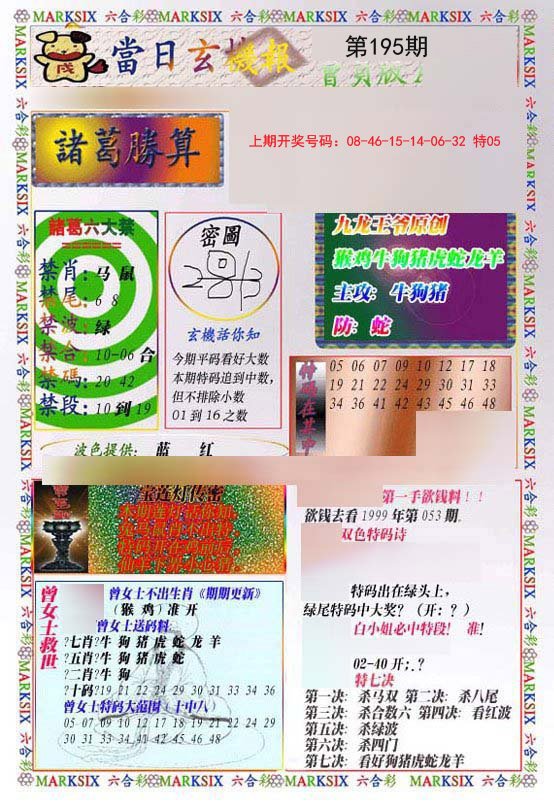 MARKSIX 六合彩 MARKSIX 六合彩 MARKSIX 六合彩 MARKSIX 六合彩 MARKSIX
當日玄機報
第195期
諸葛勝算
上期开奖号码：08-46-15-14-06-32 特05
諸葛六大禁
禁肖：马 鼠
禁尾：6 8
禁波：绿
禁合：10-06 合
禁碼：20 42
禁段：10 到 19
密圖
玄機話你知
今期平码看好大数
本期特码追到中数，
但不排除小数
01 到 16 之数
九龙王爷原创
猴鸡牛狗猪虎蛇龙羊
主攻: 牛狗猪
防: 蛇
特码在其中
05 06 07 09 10 12 17 18
19 21 22 24 29 30 31 33
34 36 41 42 43 45 46 48
波色提供: 蓝 红
宝莲灯传密
曾女士救世
曾女士不出生肖《期期更新》
（猴 鸡）准 开
曾女士送码料
?七肖?牛 狗 猪 虎 蛇 龙 羊
?五肖?牛 狗 猪 虎 蛇
?二肖?牛 狗
?十码?19 21 22 24 29 30 31 33 34 36
曾女士特码大范围（十中八）
05 07 09 10 12 17 18 19 21 22 24 29
30 31 33 34 41 42 45 46 48
第一手欲钱料！！
欲钱去看 1999 年第 053 期.
双色特码诗
特码出在绿头上,
绿尾特码中大奖? （开: ? ）
白小姐必中特段! 准!
02-40 开;. ?
特七决
第一决: 杀马双 第二决: 杀八尾
第三决: 杀合数六 第四决: 看红波
第五决: 杀绿波
第六决: 杀四门
第七决: 看好狗猪虎蛇龙羊
MARKSIX 六合彩 MARKSIX 六合彩 MARKSIX 六合彩 MARKSIX 六合彩 MARKSIX